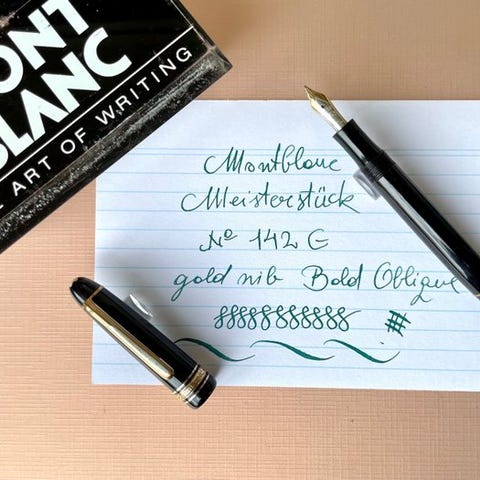 ONT
BLANC
ART OF WRITING
Montblanc
Meisterstück
Nº 142 G
gold nib Bold Oblique